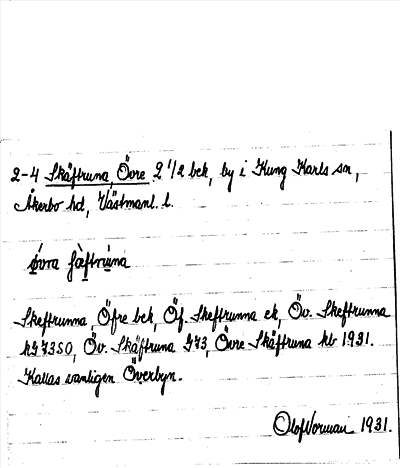 2-4 Skäftruna, Övre 2 1/2 bek, by i Kung Karls sn,
Åkerbo hd, Västmanl. l.
övra fäftruna
Skeftrunna, Öfre bek, Öf. Skeftrunna ek, Öv. Skeftrunna
Öv. Skäftruna 373, Övre Skäftruna kb 1931.
Kallas vanligen Överbyn.
Olof Norman 1931.